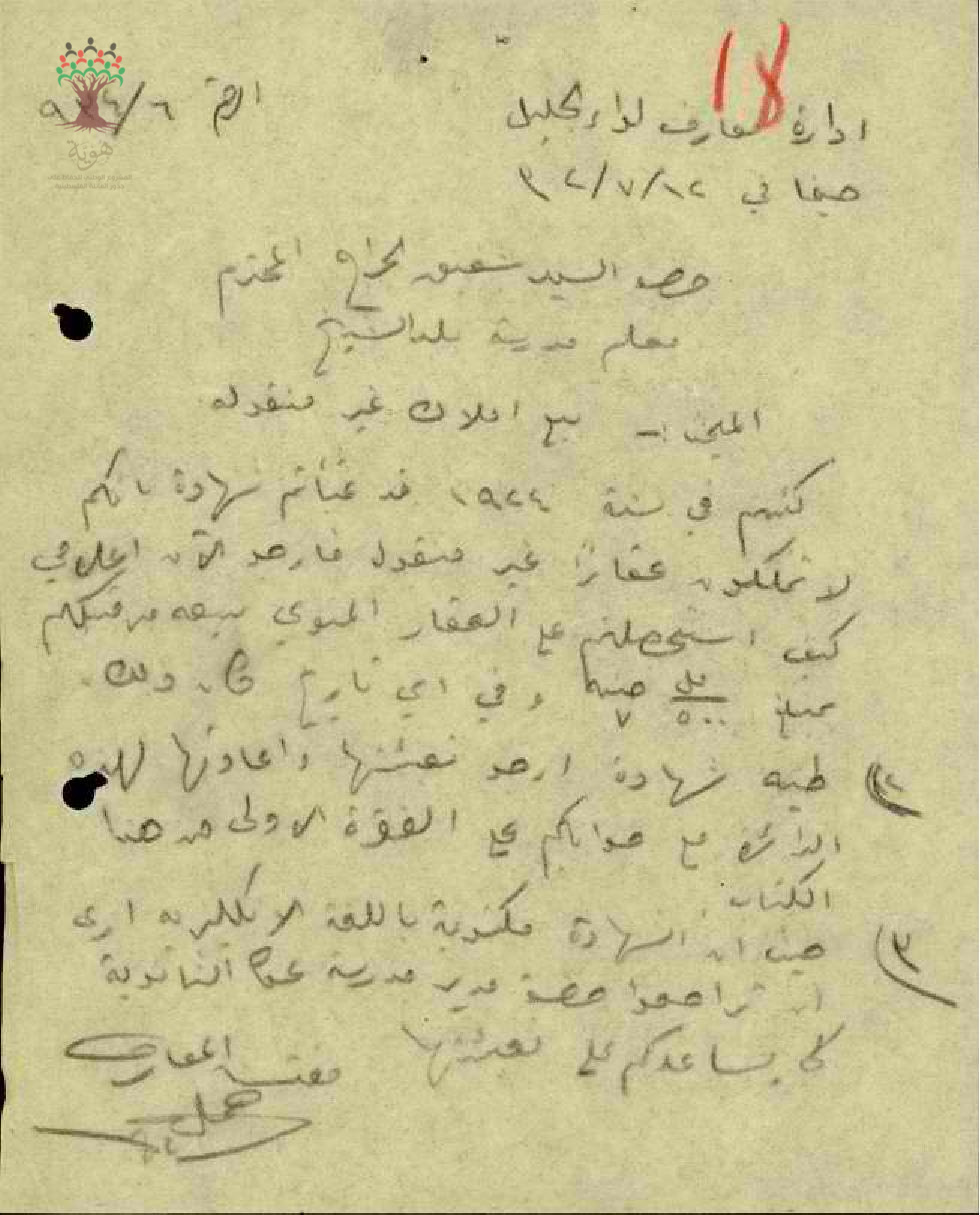 ١٨
ادارة معارف لواء الجليل
الرقم ٦/٤
حيفا في ١٢/٧/٣٢
حضرة السيد شفيق المحترم
معلم مدرسة بلد الشيخ
المبحث :- بيع املاك غير منقوله
كنتم في سنة ١٩٢٤ قد عبّأتم شهادة بانكم
لا تملكون عقاراً غير منقول فارجو الآن اعلامي
كيف استحصلتم على العقار المنوي بيعه من قبلكم
بمبلغ ٥٠٠ مل ٧ جنيه وفي اي تاريخ كان ذلك.
٢) طيه شهادة ارجو تعبئتها واعادتها لهذه
الدائرة مع جوابكم على الفقرة الاولى من هذا
الكتاب
٣) حيث ان الشهادة مكتوبة باللغة الانكليزيه ارى
ان تراجعوا حضرة مدير مدرسة عكا الثانوية
لكي يساعدكم على تعبئتها
مفتش المعارف
هوية